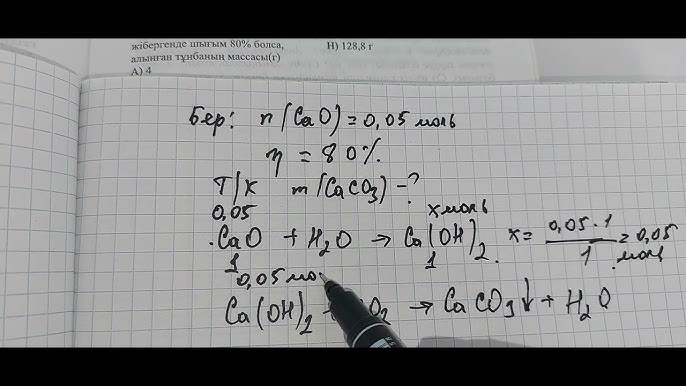 жібергенде шығым 80% болса,
H) 128,8 г
алынған тұнбаның массасы(г)
A) 4
Бер: n(CaO)=0,05 моль
η = 80%
Т/К m(CaCO3) -?
0,05 x моль
CaO + H2O → Ca(OH)2. x = 0,05·1/1 = 0,05 моль
1 1
0,05 мо
Ca(OH)2 O2 → CaCO3↓ + H2O